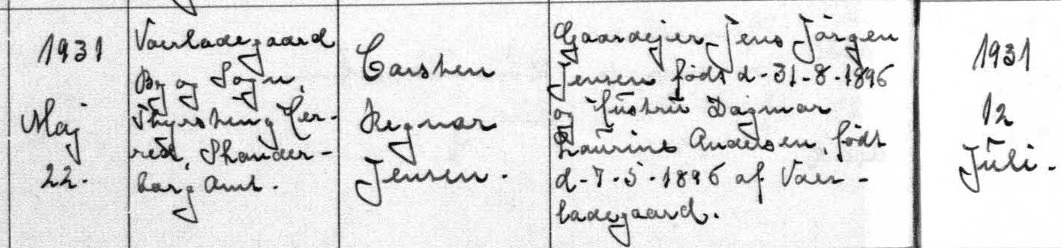 1931
Maj
22.
Voerladegaard
By og Sogn,
Thyrsting Her-
red, Skander-
borg Amt.
Carsten
Regnar
Jensen.
Gaardejer Jens Jörgen
Jensen født d. 31-8-1896
og Hustru Dagmar
Laurine Andersen, født
d-7-5-1896 af Voer-
ladegaard.
1931
12
Juli.